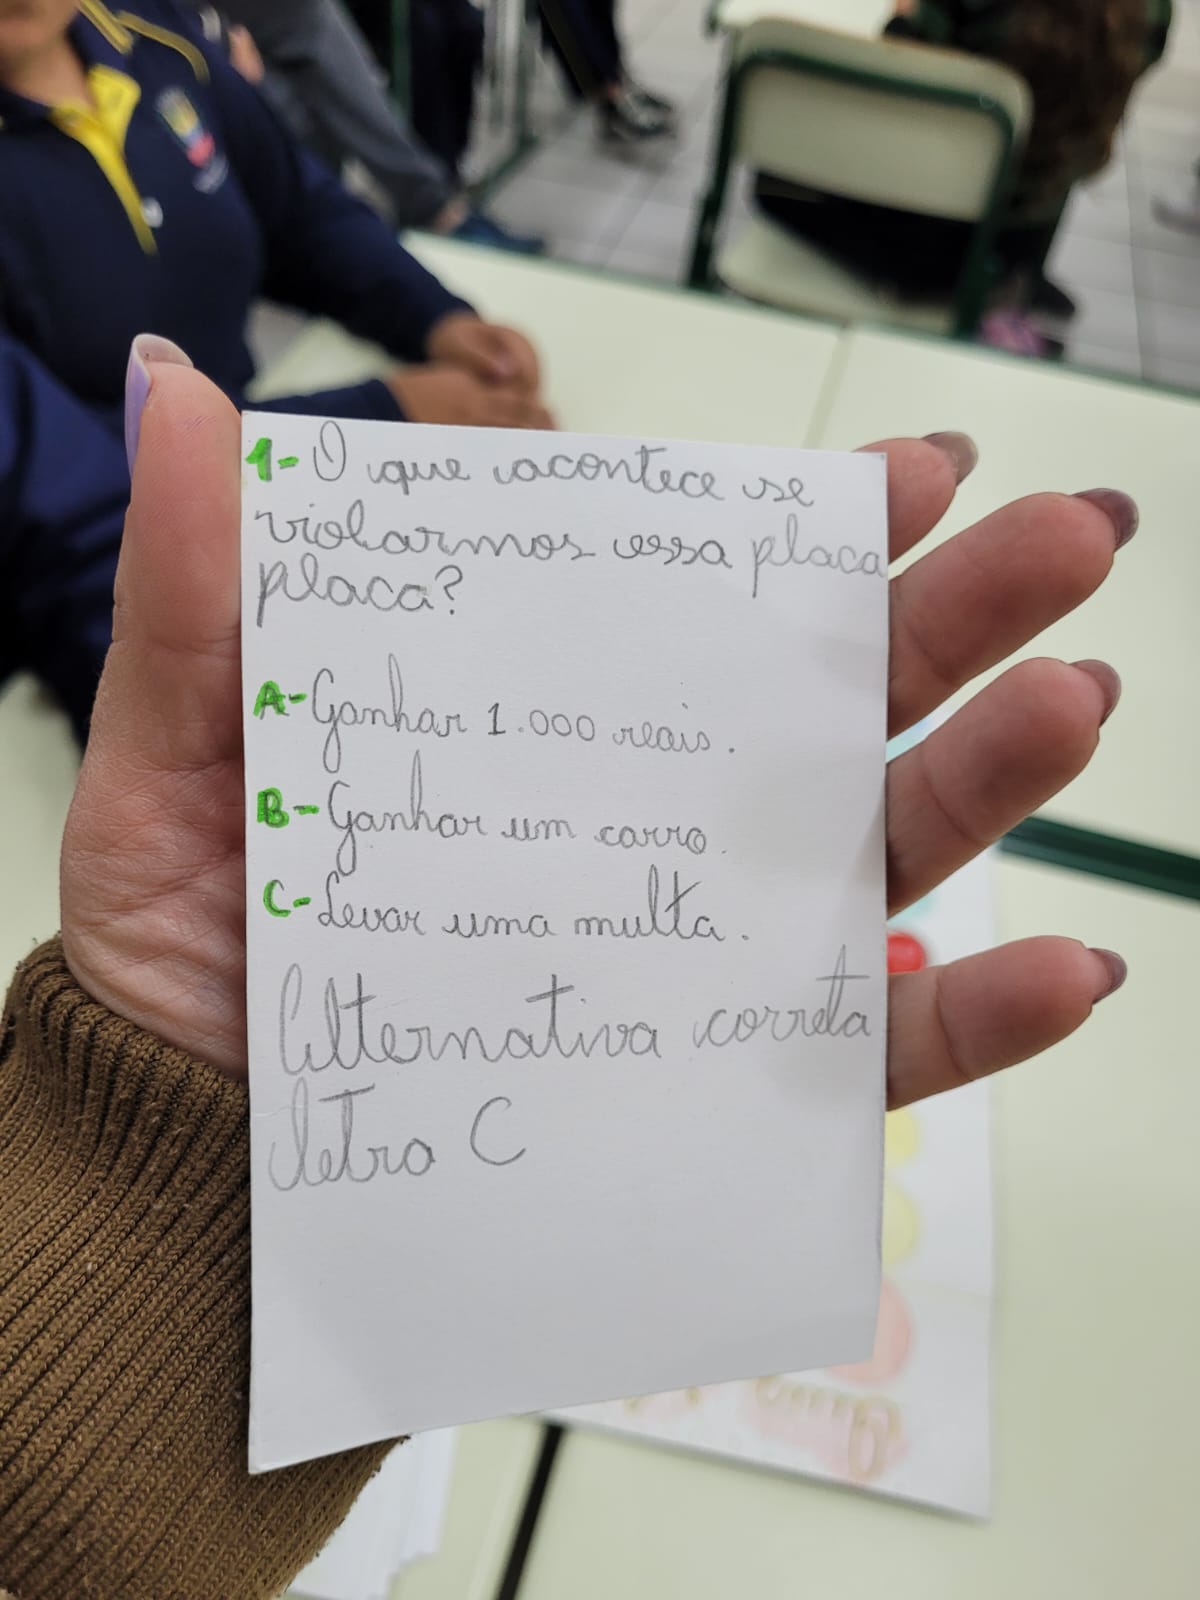 1- O que acontece se
violarmos essa placa
placa?
A- Ganhar 1.000 reais.
B- Ganhar um carro.
C- Levar uma multa.
Alternativa correta
letra C